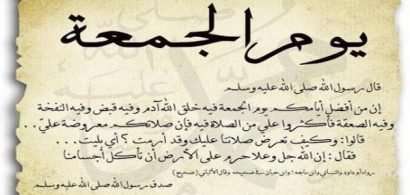 يوم الجمعة
قال رسول الله صلى الله عليه وسلم
إن من أفضل أيامكم يوم الجمعة فيه خلق الله آدم وفيه قبض وفيه النفخة
وفيه الصعقة فأكثروا علي من الصلاة فيه فإن صلاتكم معروضة علي..
قالوا: وكيف تعرض صلاتنا عليك وقد أرمت ؟ أي بليت...
فقال: إن الله جل وعلا حرم على الأرض أن تأكل أجسامنا
رواه أبو داود والنسائي وابن ماجه وابن حبان في صحيحه وقال الألباني (صحيح)
صدق رسول الله صلى الله عليه وسلم